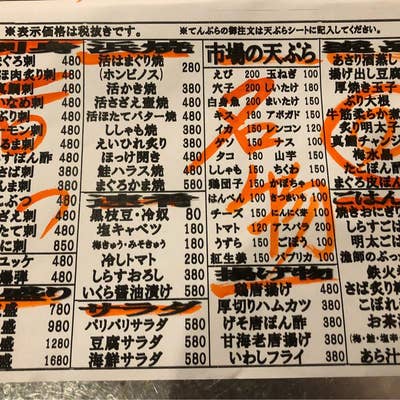 ※表示価格は税抜きです。
※てんぷらの御注文は天ぷらシートに記入してください。
浜焼
活はまぐり焼
(ホンビノス) 280
活かき焼 380
活さざえ壷焼 480
活ほたてバター焼 480
ししゃも焼 380
えいひれ炙り 380
ほっけ開き 480
鮭ハラス焼 580
まぐろかま焼 580
速番
黒枝豆・冷奴 80
塩キャベツ 180
梅きゅう・みそきゅう 180
冷しトマト 280
しらすおろし 380
いくら醤油漬け 580
サラダ
パリパリサラダ 380
豆腐サラダ 580
海鮮サラダ 580
市場の天ぷら
えび 200 玉ねぎ 100
穴子 200 しいたけ 180
白身魚 200 まいたけ 150
キス 180 アボガド 150
イカ 150 レンコン 120
ゲソ 150 ナス 100
タコ 180 山芋 150
ししゃも 150 ちくわ 150
鶏団子 180 かぼちゃ 100
はんぺん 100 さつまいも 100
チーズ 100 にんにく芽 100
トマト 120 アスパラ 200
うずら 150 ごぼう 100
紅生姜 150 パプリカ 100
揚げ物
鶏唐揚げ 480
厚切りハムカツ 380
げそ唐ぽん酢 380
甘海老唐揚げ 380
いわしフライ 380
まぐろ刺 480
ほ肉炙り刺 480
真鯛刺 480
いなめ刺 480
ぶり刺 480
ーモン刺 480
まる刺 480
すぽん酢 480
さば刺 480
しま刺 580
こぶつ 380
さざえ刺 480
たて刺 480
に刺 850
ユッケ 480
爆弾 480
盛り
盛 780
盛 980
盛 1280
盛 1680
あさり酒蒸し
揚げ出し豆腐
厚焼き玉子
ぶり大根
牛筋柔らか煮
炙り明太子
真鯛チャンジ
梅水晶
たこぽん酢
まぐろ皮ぽん
ごはん
焼きおにぎり
しらすごは
明太ごは
漁師のぶっ
鉄火
さば炙り
こぼれ
お茶
(梅・鮭・塩辛
あら汁